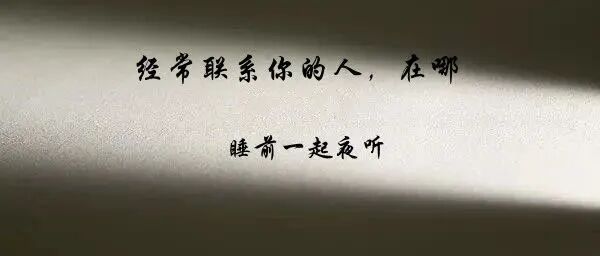 经常联系你的人，在哪
睡前一起夜听